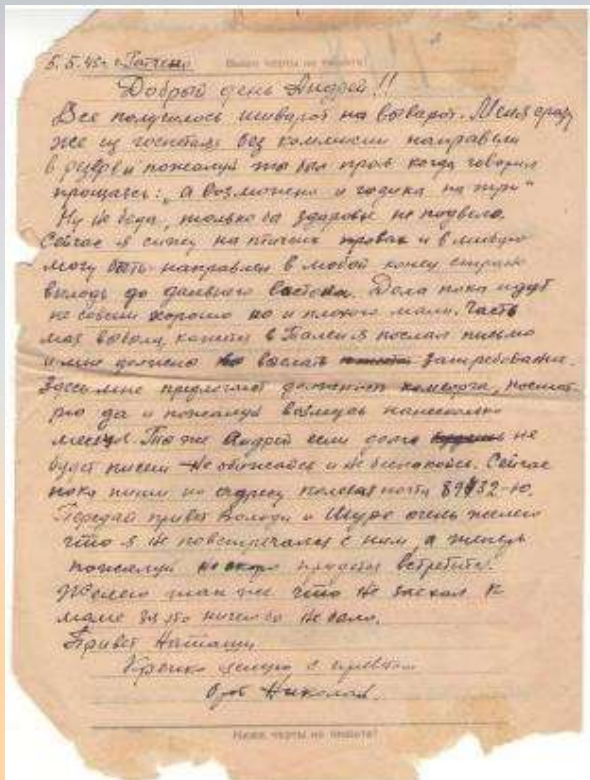 5.5.45г. г. Гатчина Выше черты не писать!
Добрый день Андрей!!
Все получилось шиворот на выворот. Меня сразу
же из госпиталя без комиссии направили
в резерв и пожалуй ты был прав когда говорил
прощаясь: „а возможно и годика на три"
Ну не беда, только бы здоровье не подвело.
Сейчас я сижу на птичих правах и в любую
могу быть направлен в любой конец страны
вплодь до дальнего востока. Дела пока идут
не совсем хорошо но и плохого мало. Часть
моя послал письмо
и мне должны выслать затребование.
Здесь мне предлогают должность комсорга, посмот
рю да и пожалуй возмусь нанесколько
месяцев. Так же Андрей если долго не
будет писем не обижайся и не беспокойся. Сейчас
пока пиши по адресу полевая почта 89432-ю.
Передай привет Володи и Шуре очень жалею
что я не повстречался с ним, а теперь
пожалуй не скоро придется встретится.
Жалею так же что не заехал к
маме за это ничего бы не было.
Привет Наташи
Крепко целую с приветом
брат Николай.
Ниже черты не писать!